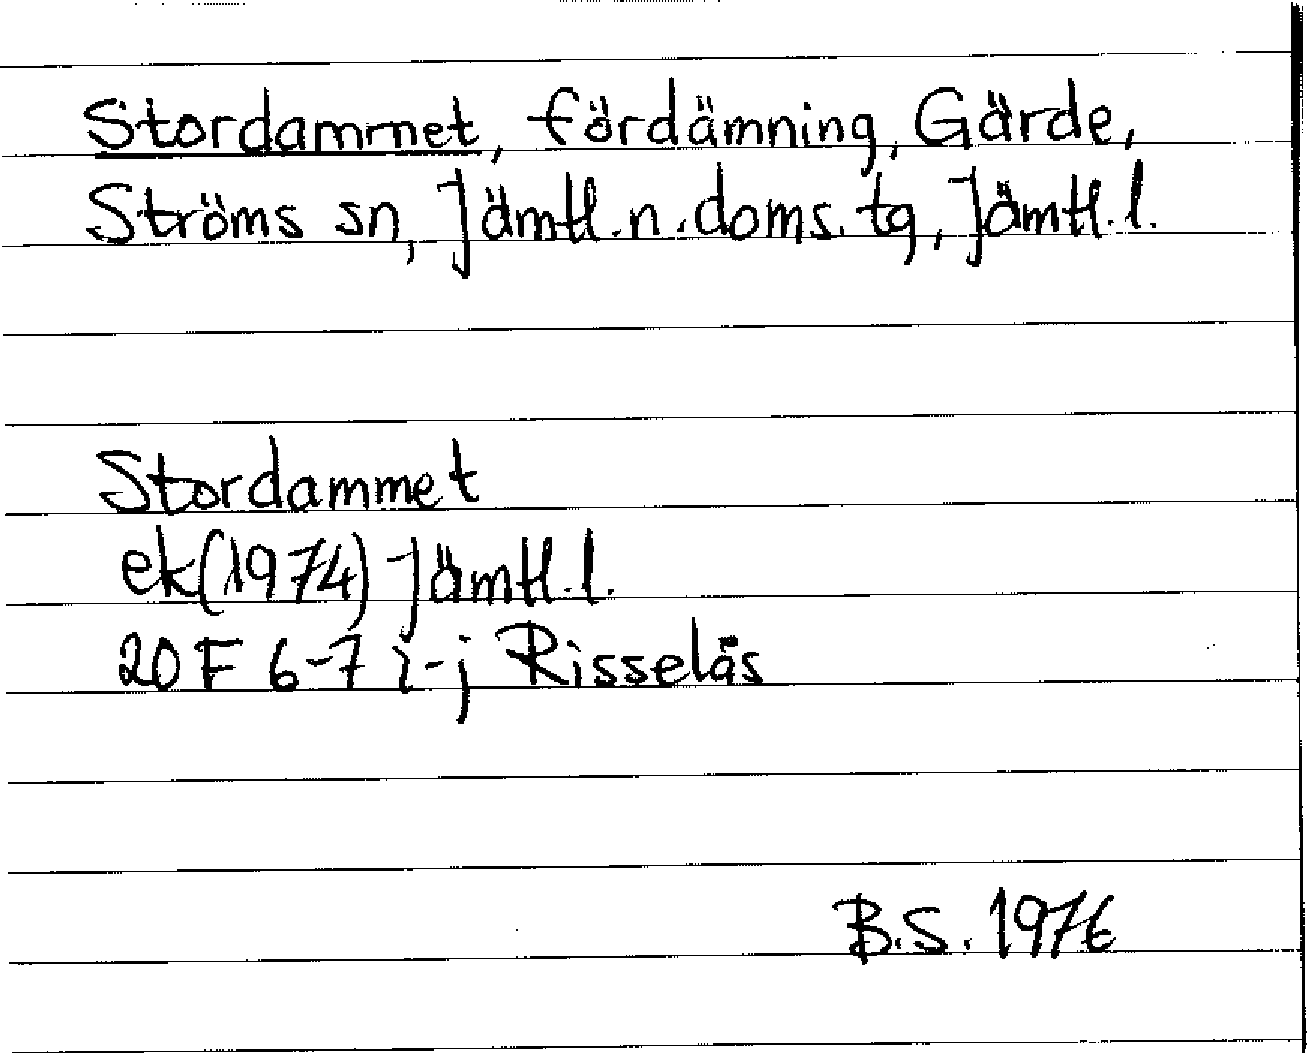 Stordammet, fördämning, Gärde,
Ströms sn, Jämtl. n. doms. tg, Jämtl. l.
Stordammet
ek (1974) Jämtl. l.
20 F 6-7 i-j Risselås
B.S. 1976